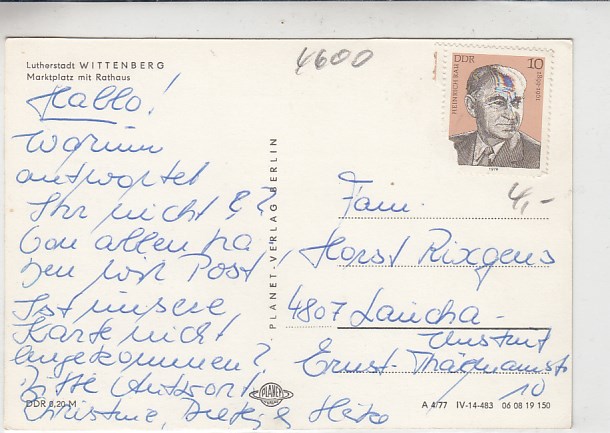 Lutherstadt WITTENBERG
Marktplatz mit Rathaus
4600
HEINRICH RAU
DDR
10
1899-1961
1979
4,-
Hallo!
Warum
antwortet
Ihr nicht??
Von allen ha
ben wir Post,
Ist unsere
Karte nicht
angekommen?
Bitte Antwort!
Christine, Heiko
PLANET-VERLAG BERLIN
Fam.
Horst Rixgens
4807 Laucha-
Unstrut
Ernst-Thälmannstr
10
PLANET
DDR 0,20 M
A 4/77 IV-14-483 06 08 19 150